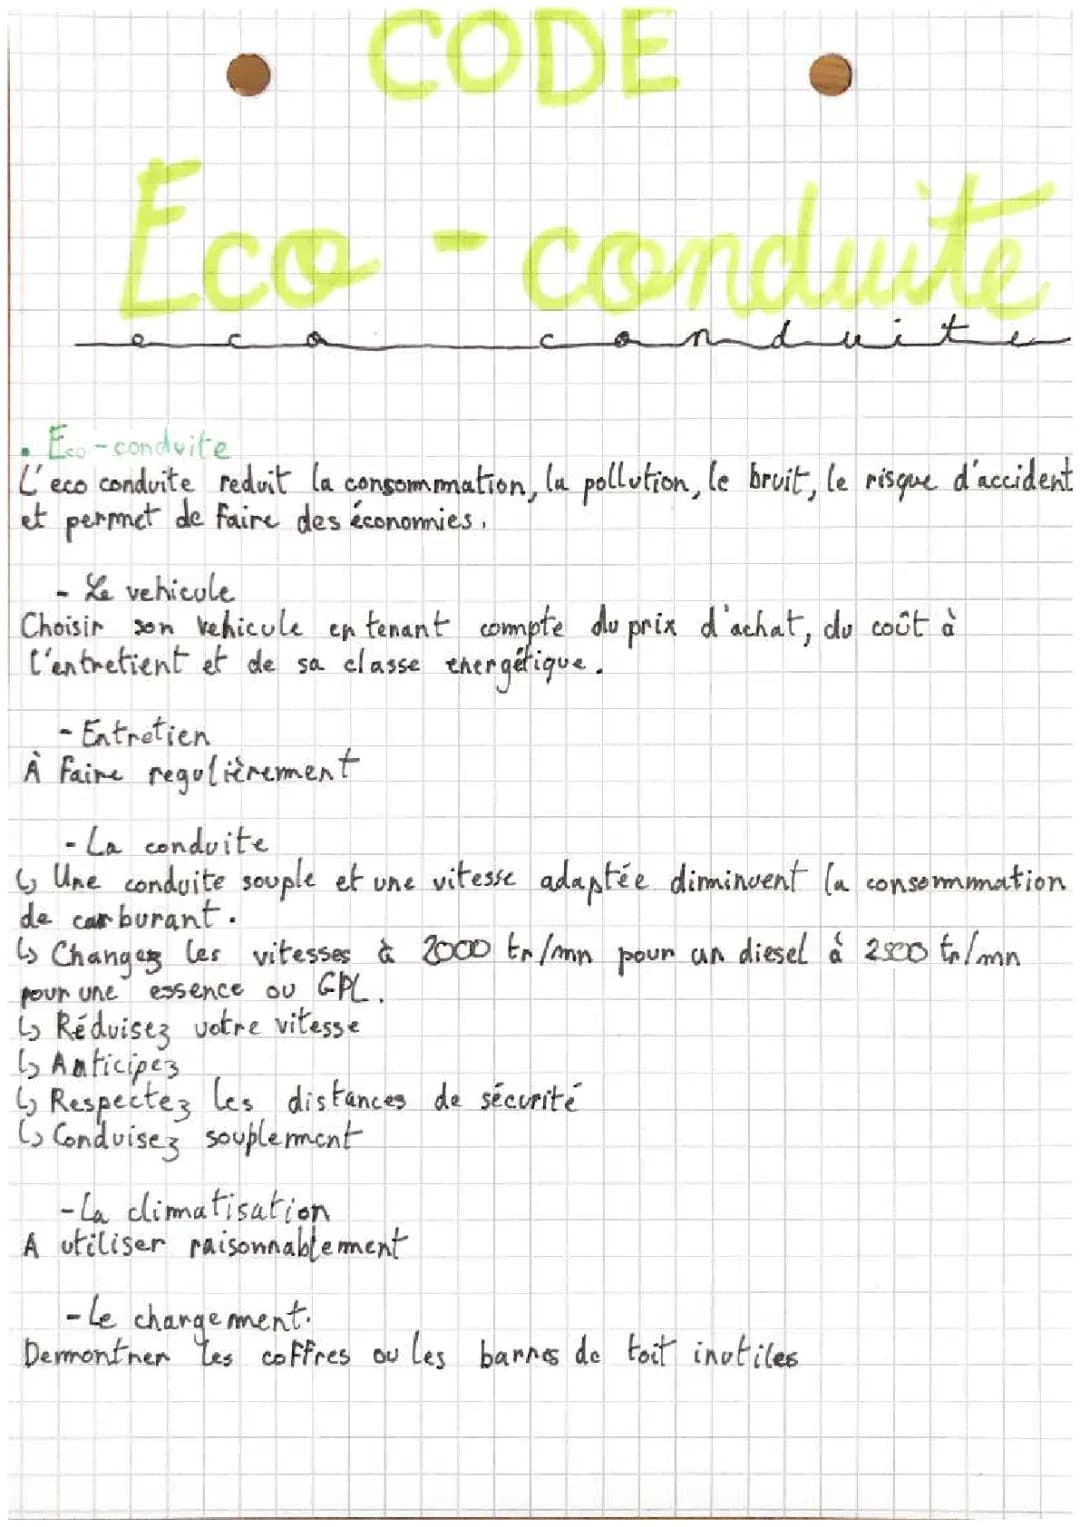 CODE
Eco - conduite
eco conduite
• Eco-conduite
L'eco conduite reduit la consommation, la pollution, le bruit, le risque d'accident
et permet de faire des économies.
- Le vehicule
Choisir son vehicule en tenant compte du prix d'achat, du coût à
l'entretient et de sa classe energétique.
- Entretien
À faire regulièrement
- La conduite
↳ Une conduite souple et une vitesse adaptée diminuent la consommation
de carburant.
↳ Changez les vitesses à 2000 tr/mn pour un diesel à 2500 tr/mn
pour une essence ou GPL.
↳ Réduisez votre vitesse
↳ Anticipez
↳ Respectez les distances de sécurité
↳ Conduisez souplement
- La climatisation
A utiliser raisonnablement
- Le changement.
Demontrer les coffres ou les barres de toit inutiles